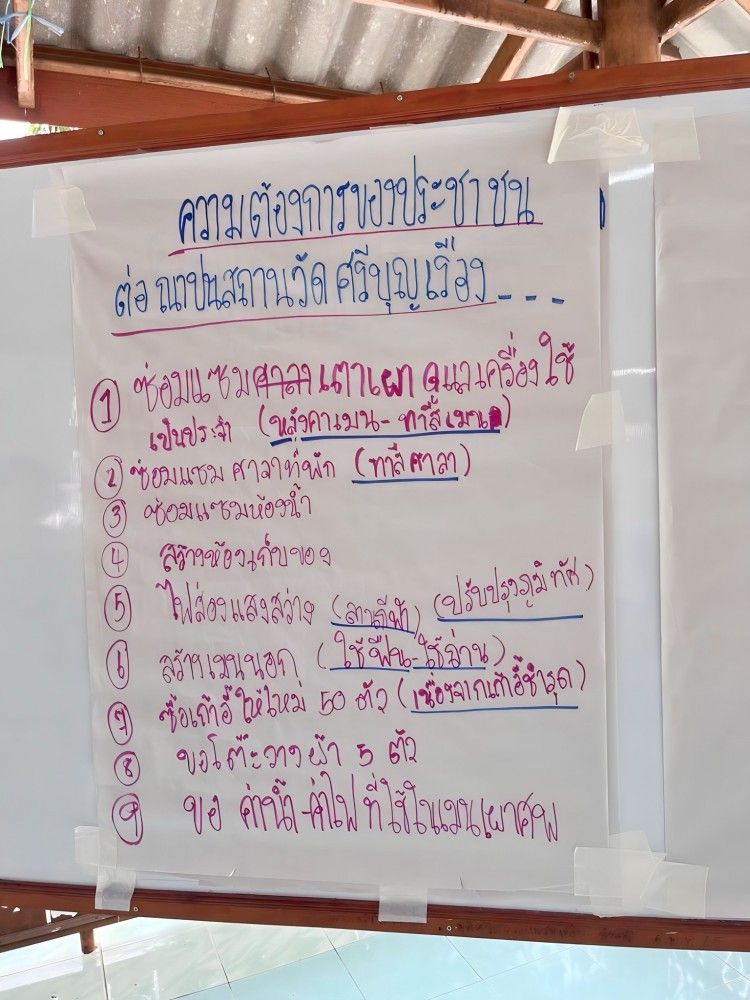 ความต้องการของประชาชน
ต่อ ฌาปนสถานวัดศรีบุญเรือง - - -
① ซ่อมแซมศาลาเตาเผา ดูแลเครื่องใช้
เป็นประจำ (หลังคาเมน - ทาสีเมน)
② ซ่อมแซม ศาลาที่พัก (ทาสีศาลา)
③ ซ่อมแซมห้องน้ำ
④ สร้างห้องเก็บของ
⑤ ไฟส่องแสงสว่าง (สายไฟ) (ปรับปรุงภูมิทัศ)
⑥ สร้างเมนนอก (ใช้ฟืน - ใช้ถ่าน)
⑦ ซื้อเก้าอี้ให้ใหม่ 50 ตัว (เนื่องจากเก้าอี้ชำรุด)
⑧ ขอโต๊ะวางผ้า 5 ตัว
⑨ ขอ ค่าน้ำ - ค่าไฟ ที่ใช้ในเมนเผาศพ